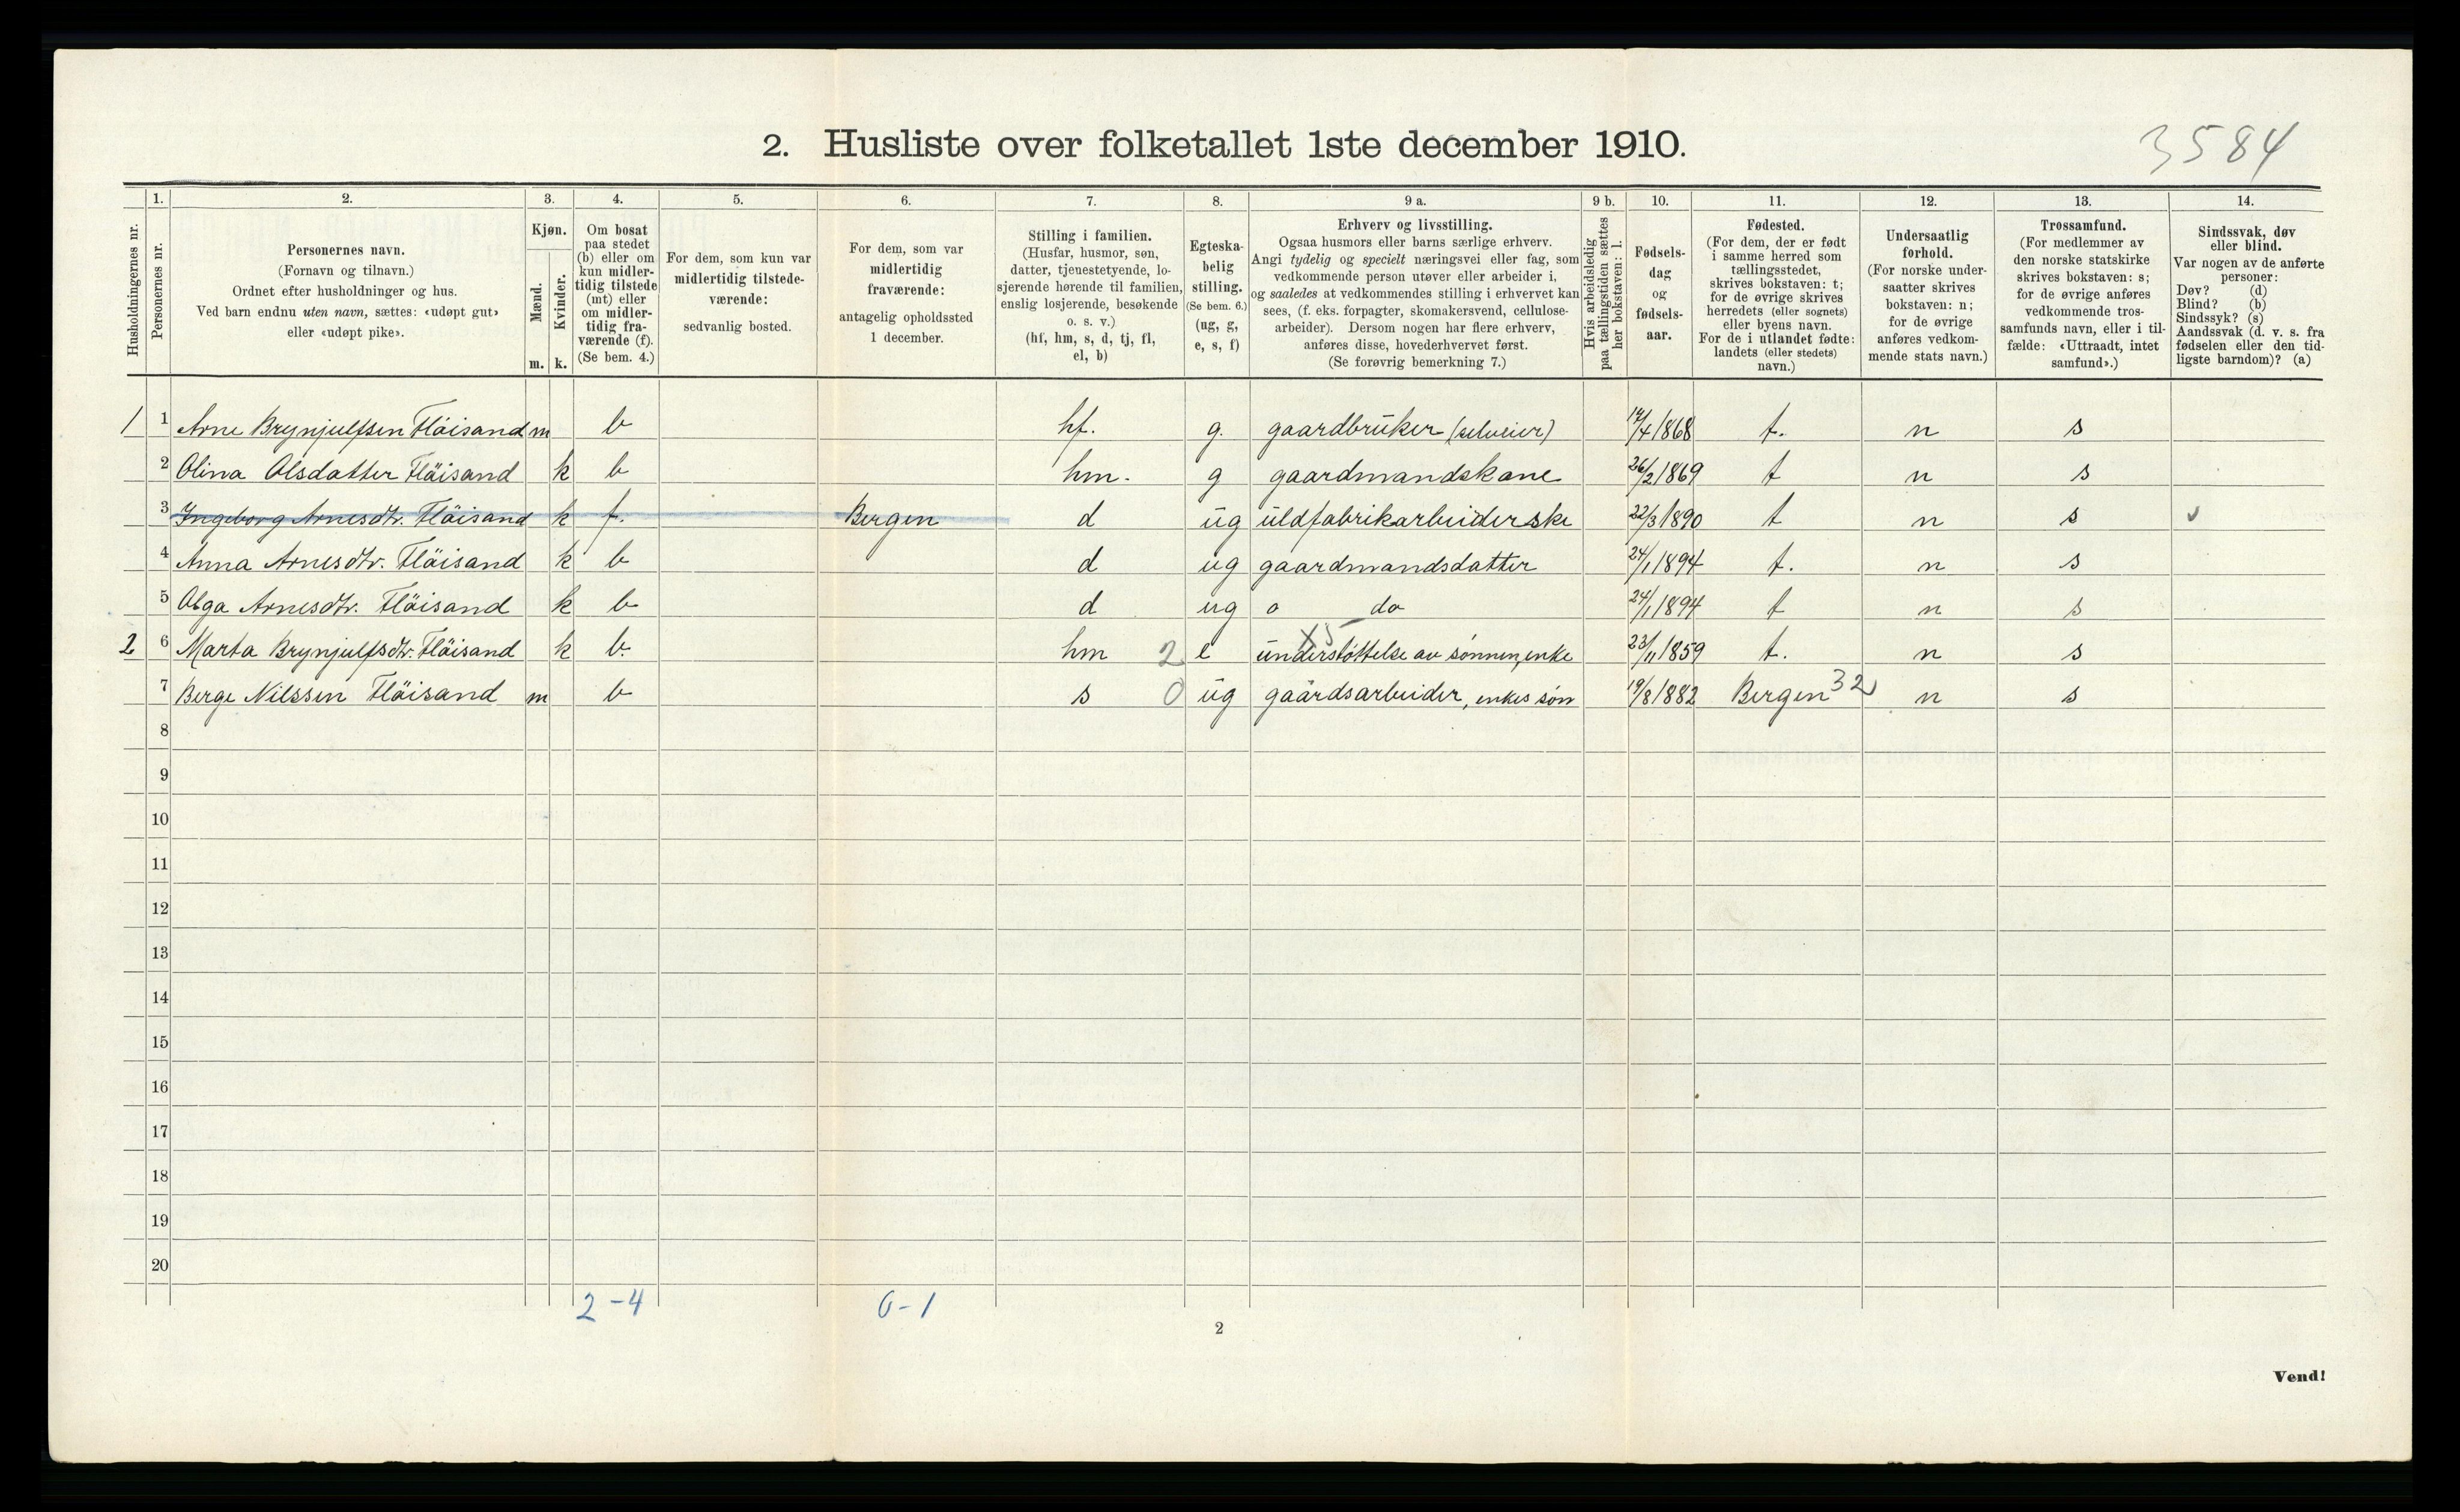 2. Husliste over folketallet 1ste december 1910.
3584
Husholdningernes nr.
1.
Personernes nr.
2.
Personernes navn.
(Fornavn og tilnavn.)
Ordnet efter husholdninger og hus.
Ved barn endnu uten navn, sættes: «udøpt gut»
eller «udøpt pike».
3.
Kjøn.
Mænd.
Kvinder.
m. k.
4.
Om bosat
paa stedet
(b) eller om
kun midler-
tidig tilstede
(mt) eller
om midler-
tidig fra-
værende (f).
(Se bem. 4.)
5.
For dem, som kun var
midlertidig tilstede-
værende:
sedvanlig bosted.
6.
For dem, som var
midlertidig
fraværende:
antagelig opholdssted
1 december.
7.
Stilling i familien.
(Husfar, husmor, søn,
datter, tjenestetyende, lo-
sjerende hørende til familien,
enslig losjerende, besøkende
o. s. v.)
(hf, hm, s, d, tj, fl,
el, b)
8.
Egteska-
belig
stilling.
(Se bem. 6.)
(ug, g,
e, s, f)
9 a.
Erhverv og livsstilling.
Ogsaa husmors eller barns særlige erhverv.
Angi tydelig og specielt næringsvei eller fag, som
vedkommende person utøver eller arbeider i,
og saaledes at vedkommendes stilling i erhvervet kan
sees, (f. eks. forpagter, skomakersvend, cellulose-
arbeider). Dersom nogen har flere erhverv,
anføres disse, hovederhvervet først.
(Se forøvrig bemerkning 7.)
9 b.
Hvis arbeidsledig
paa tællingstiden sættes
her bokstaven: l.
10.
Fødsels-
dag
og
fødsels-
aar.
11.
Fødested.
(For dem, der er født
i samme herred som
tællingsstedet,
skrives bokstaven: t;
for de øvrige skrives
herredets (eller sognets)
eller byens navn.
For de i utlandet fødte:
landets (eller stedets)
navn.)
12.
Undersaatlig
forhold.
(For norske under-
saatter skrives
bokstaven: n;
for de øvrige
anføres vedkom-
mende stats navn.)
13.
Trossamfund.
(For medlemmer av
den norske statskirke
skrives bokstaven: s;
for de øvrige anføres
vedkommende tros-
samfunds navn, eller i til-
fælde: «Uttraadt, intet
samfund».)
14.
Sindssvak, døv
eller blind.
Var nogen av de anførte
personer:
Døv? (d)
Blind? (b)
Sindssyk? (s)
Aandssvak (d. v. s. fra
fødselen eller den tid-
ligste barndom)? (a)
1 1 Arne Brynjulfsen Fläisand m b hf. g. gaardbruker (selveier) 14/4 1868 t. n s
2 Olina Olsdatter Fläisand k b hm. g gaardmandskone 26/2 1869 t n s
3 Ingeborg Arnesdtr. Fläisand k f. Bergen d ug uldfabrikarbeiderske 22/3 1890 t n s ✓
4 Anna Arnesdtr. Fläisand k b d ug gaardmandsdatter 24/1 1894 t. n s
5 Olga Arnesdtr. Fläisand k b d ug o do 24/1 1894 t n s
2 6 Marta Brynjulfsdtr. Fläisand k b. hm 2 e understøttelse av sønnen, enke 23/11 1859 t. n s
7 Berge Nilssen Fläisand m b s 0 ug gaardsarbeider, enkes søn 19/8 1882 Bergen 32 n s
8
9
10
11
12
13
14
15
16
17
18
19
20
2-4 0-1
2
Vend!